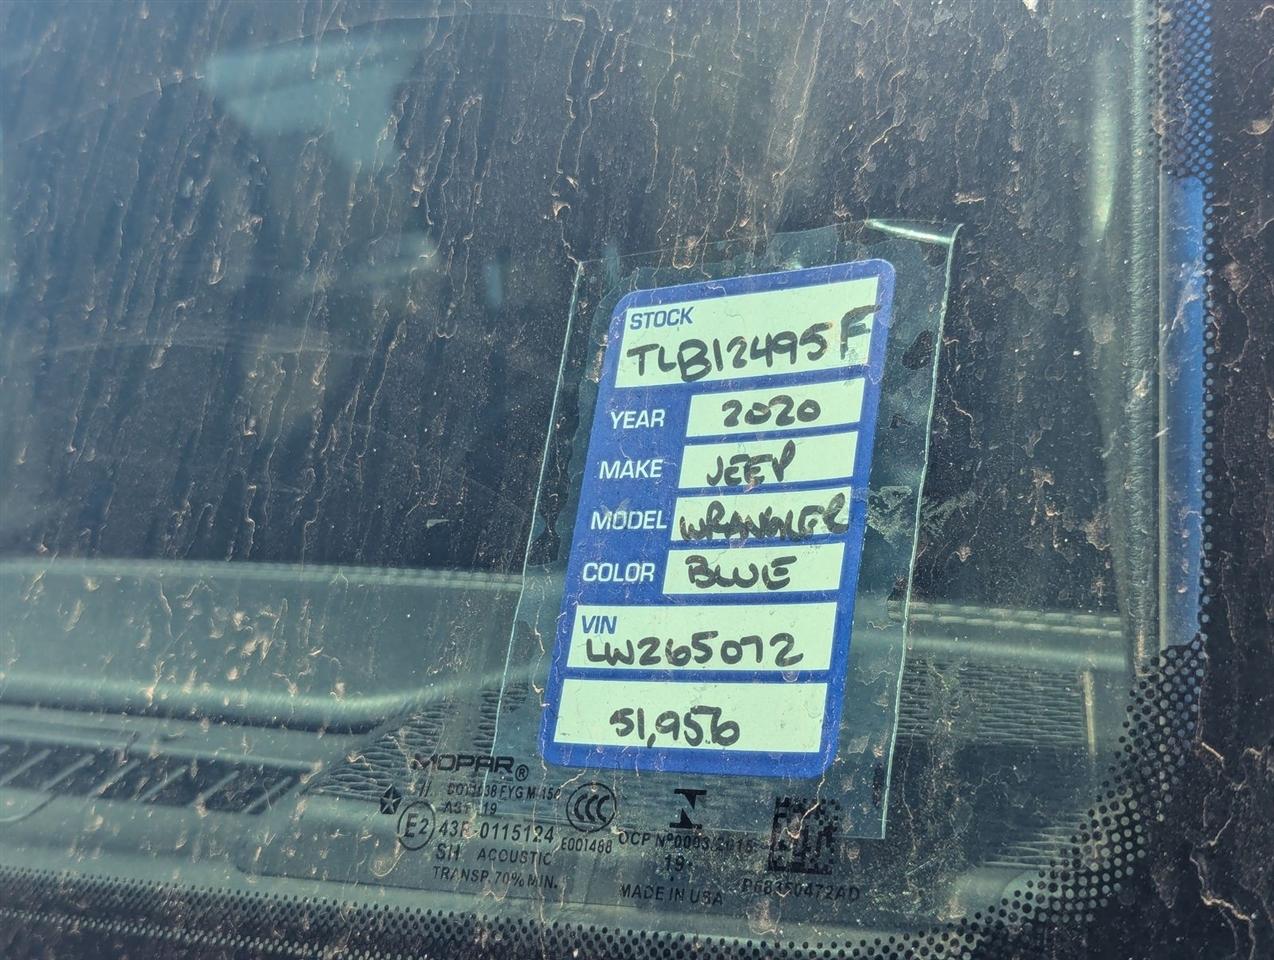 STOCK
TLB12495F
YEAR 2020
MAKE JEEP
MODEL WRANGLER
COLOR BLUE
VIN
LW265072
51,956
MOPAR®
E2 43R-0115124
CCC
E001488
OCP Nº0003/2015
SH ACOUSTIC
19
TRANSP. 70% MIN.
MADE IN USA
P68350472AD